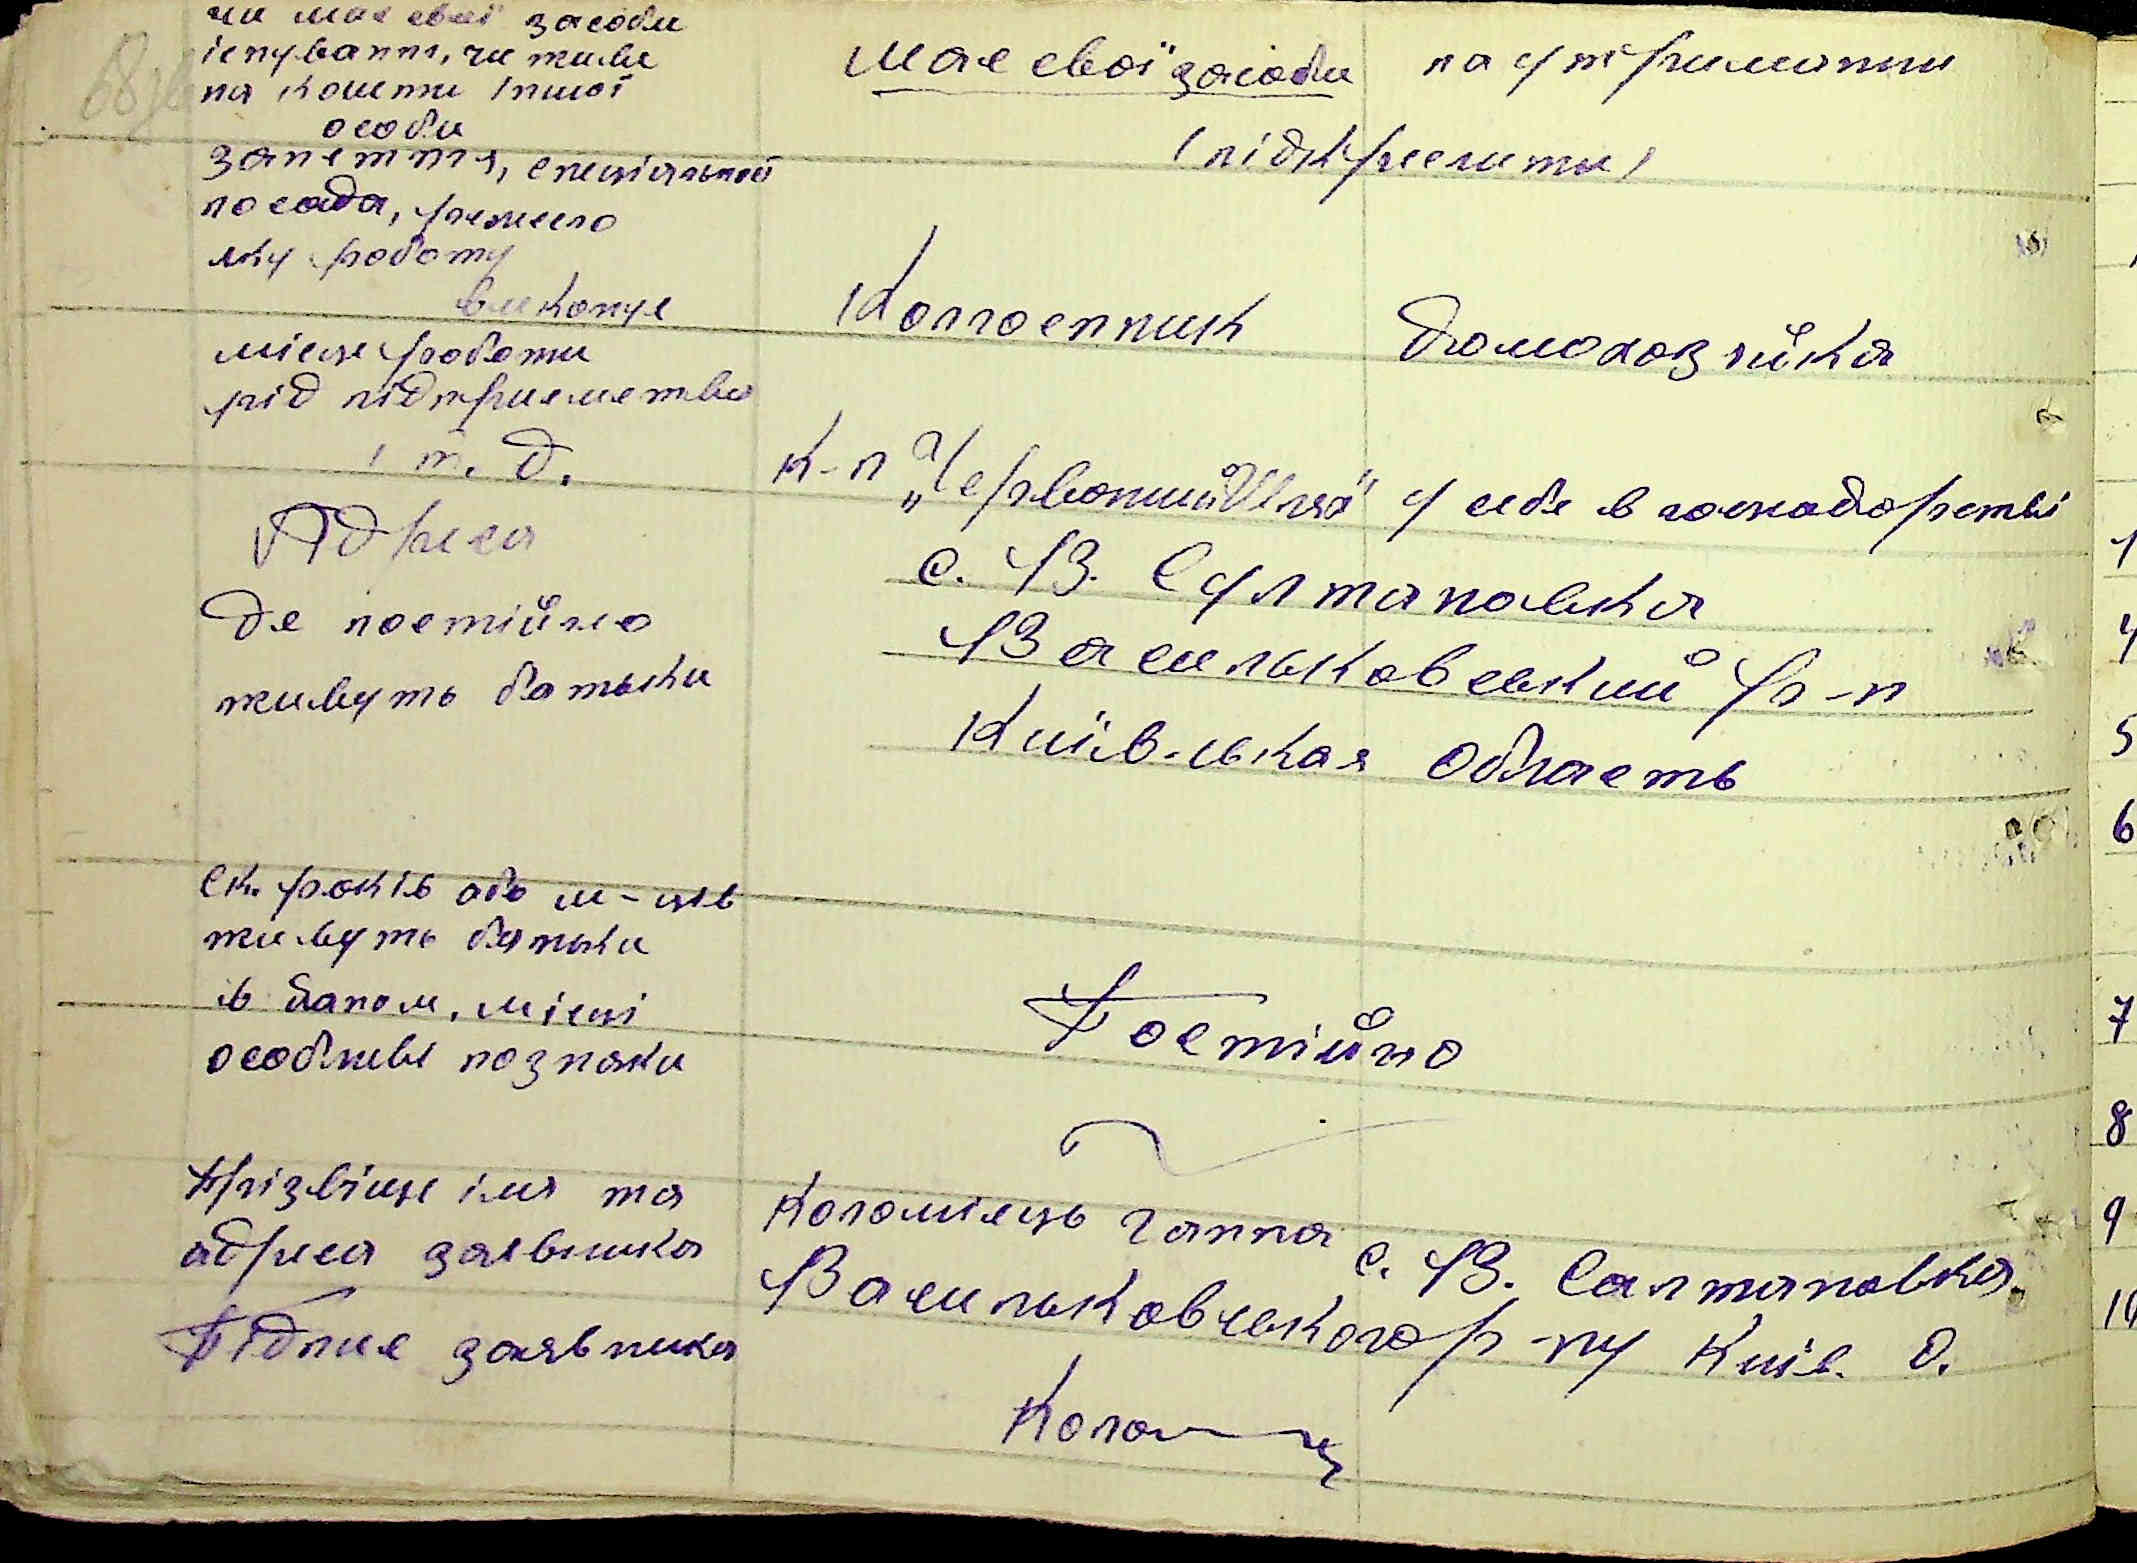 чи має свої засоби
існування, чи живе
на кошти іншої
особи
має свої засоби на утриманни
(підкреслити)
заняття, спеціальност
посада, ремесло
яку роботу
виконує
Колгоспник Домохозяйка
місце роботи
рід підприємства
і т. д.
к-п „Червоний Шлях" у себе в господорстві
Адреса
де постійно
живуть батьки
с. В. Султановка
Васильковський р-н
Київ.ськая область
Ск. років або м-ців
живуть батьки
в даном. місці
Постійно
особливі познаки
Прізвіще імя та
адреса заявника
Коломієць Ганна с. В. Салтановка
Васильковського р-ну Київ. О.
Підпис заявника
Коло
68
1
4
5
6
7
8
9
10